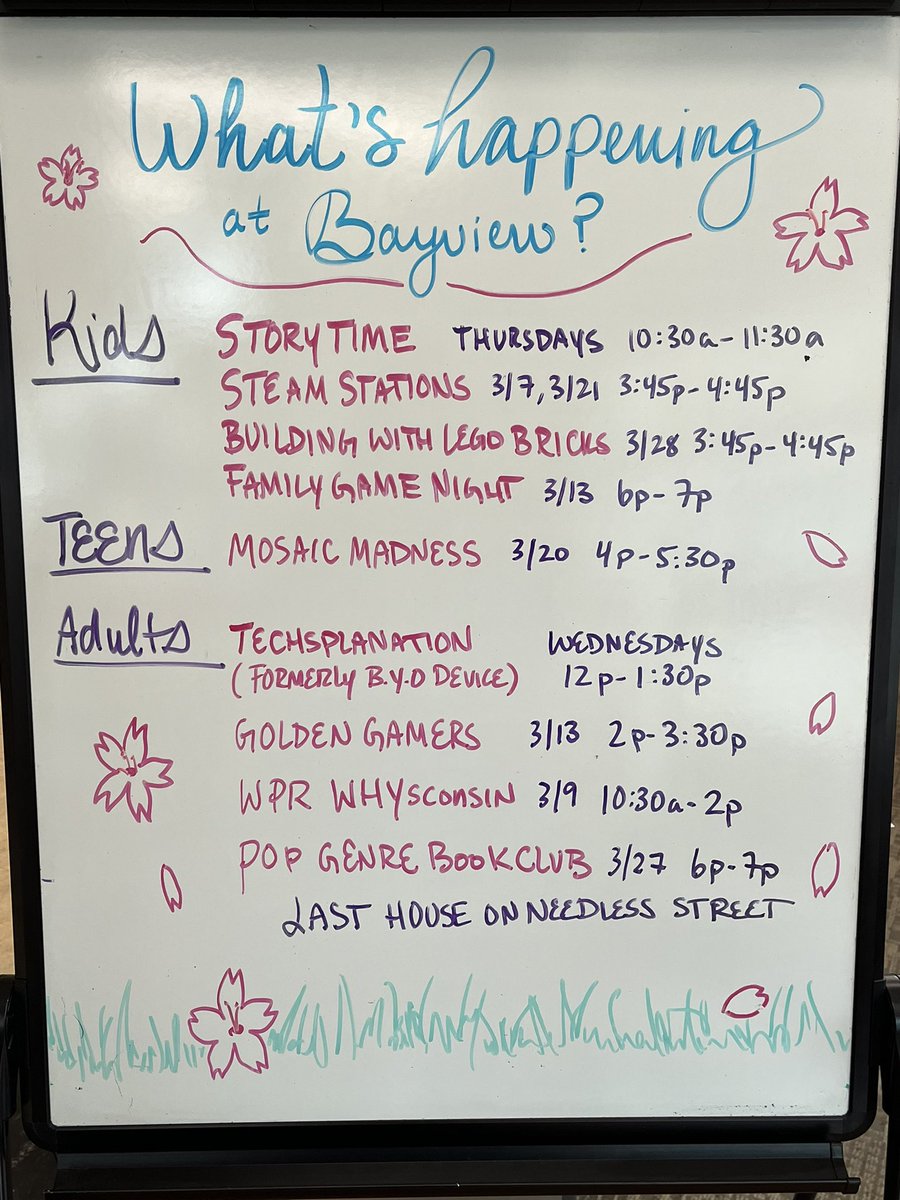 What's happening
at Bayview?
Kids STORYTIME THURSDAYS 10:30a-11:30a
STEAM STATIONS 3/7, 3/21 3:45p-4:45p
BUILDING WITH LEGO BRICKS 3/28 3:45p-4:45p
FAMILY GAME NIGHT 3/13 6p-7p
TEENS MOSAIC MADNESS 3/20 4p-5:30p
Adults TECHSPLANATION WEDNESDAYS
(FORMERLY B.Y.O DEVICE) 12p-1:30p
GOLDEN GAMERS 3/13 2p-3:30p
WPR WHYSCONSIN 3/9 10:30a-2p
POP GENRE BOOK CLUB 3/27 6p-7p
LAST HOUSE ON NEEDLESS STREET